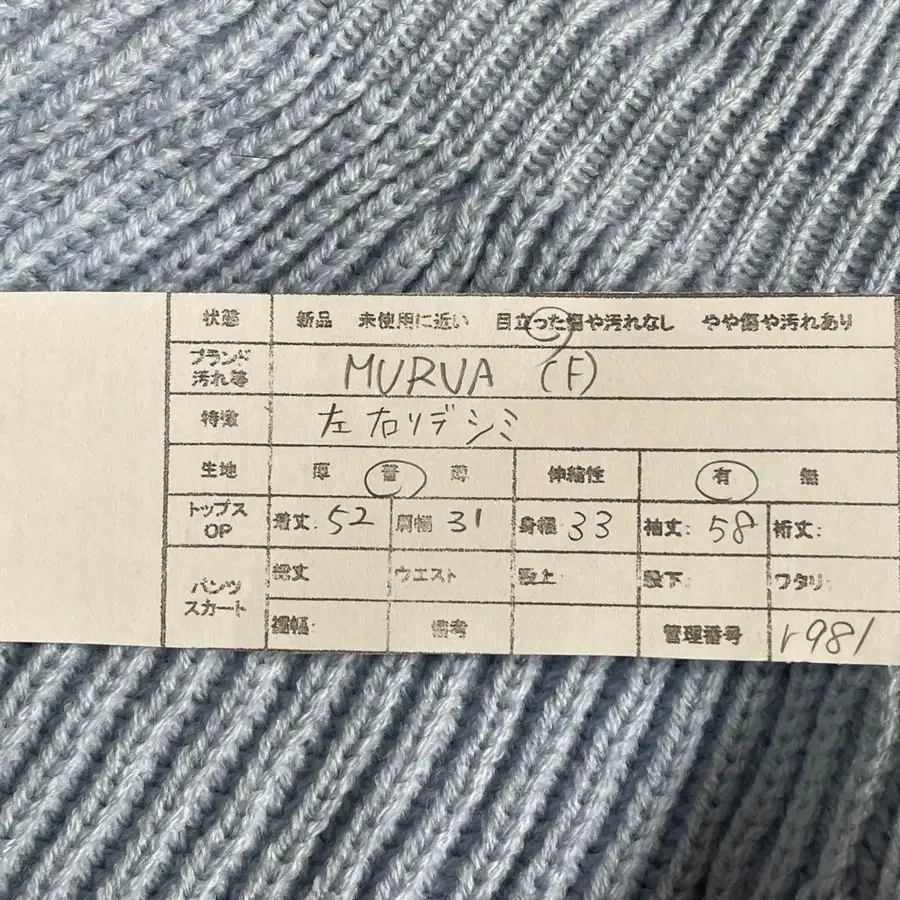 状態 新品 未使用に近い 目立った傷や汚れなし やや傷や汚れあり
ブランド MURUA (F)
汚れ等
特徴 左右ソデシミ
生地 厚 普 薄 伸縮性 有 無
トップス OP 着丈: 52 肩幅 31 身幅 33 袖丈: 58 裄丈:
パンツ スカート 総丈 ウエスト 股上: 股下: ワタリ:
裾幅: 備考 管理番号 r981